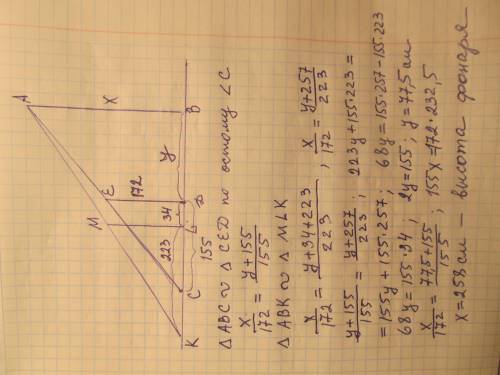 A
M
E
X
172
34
y
223
K
C
L
D
B
155
△ ABC ∾ △ CED по острому ∠C
x/172 = y+155/155
△ ABK ∾ △ MLK
x/172 = y+34+223/223 ; x/172 = y+257/223
y+155/155 = y+257/223 ; 223y+155·223=
=155y+155·257; 68y=155·257-155·223
68y=155·34; 2y=155; y=77,5 см
x/172 = 77,5+155/155 ; 155x=172·232,5
x=258 см – высота фонаря